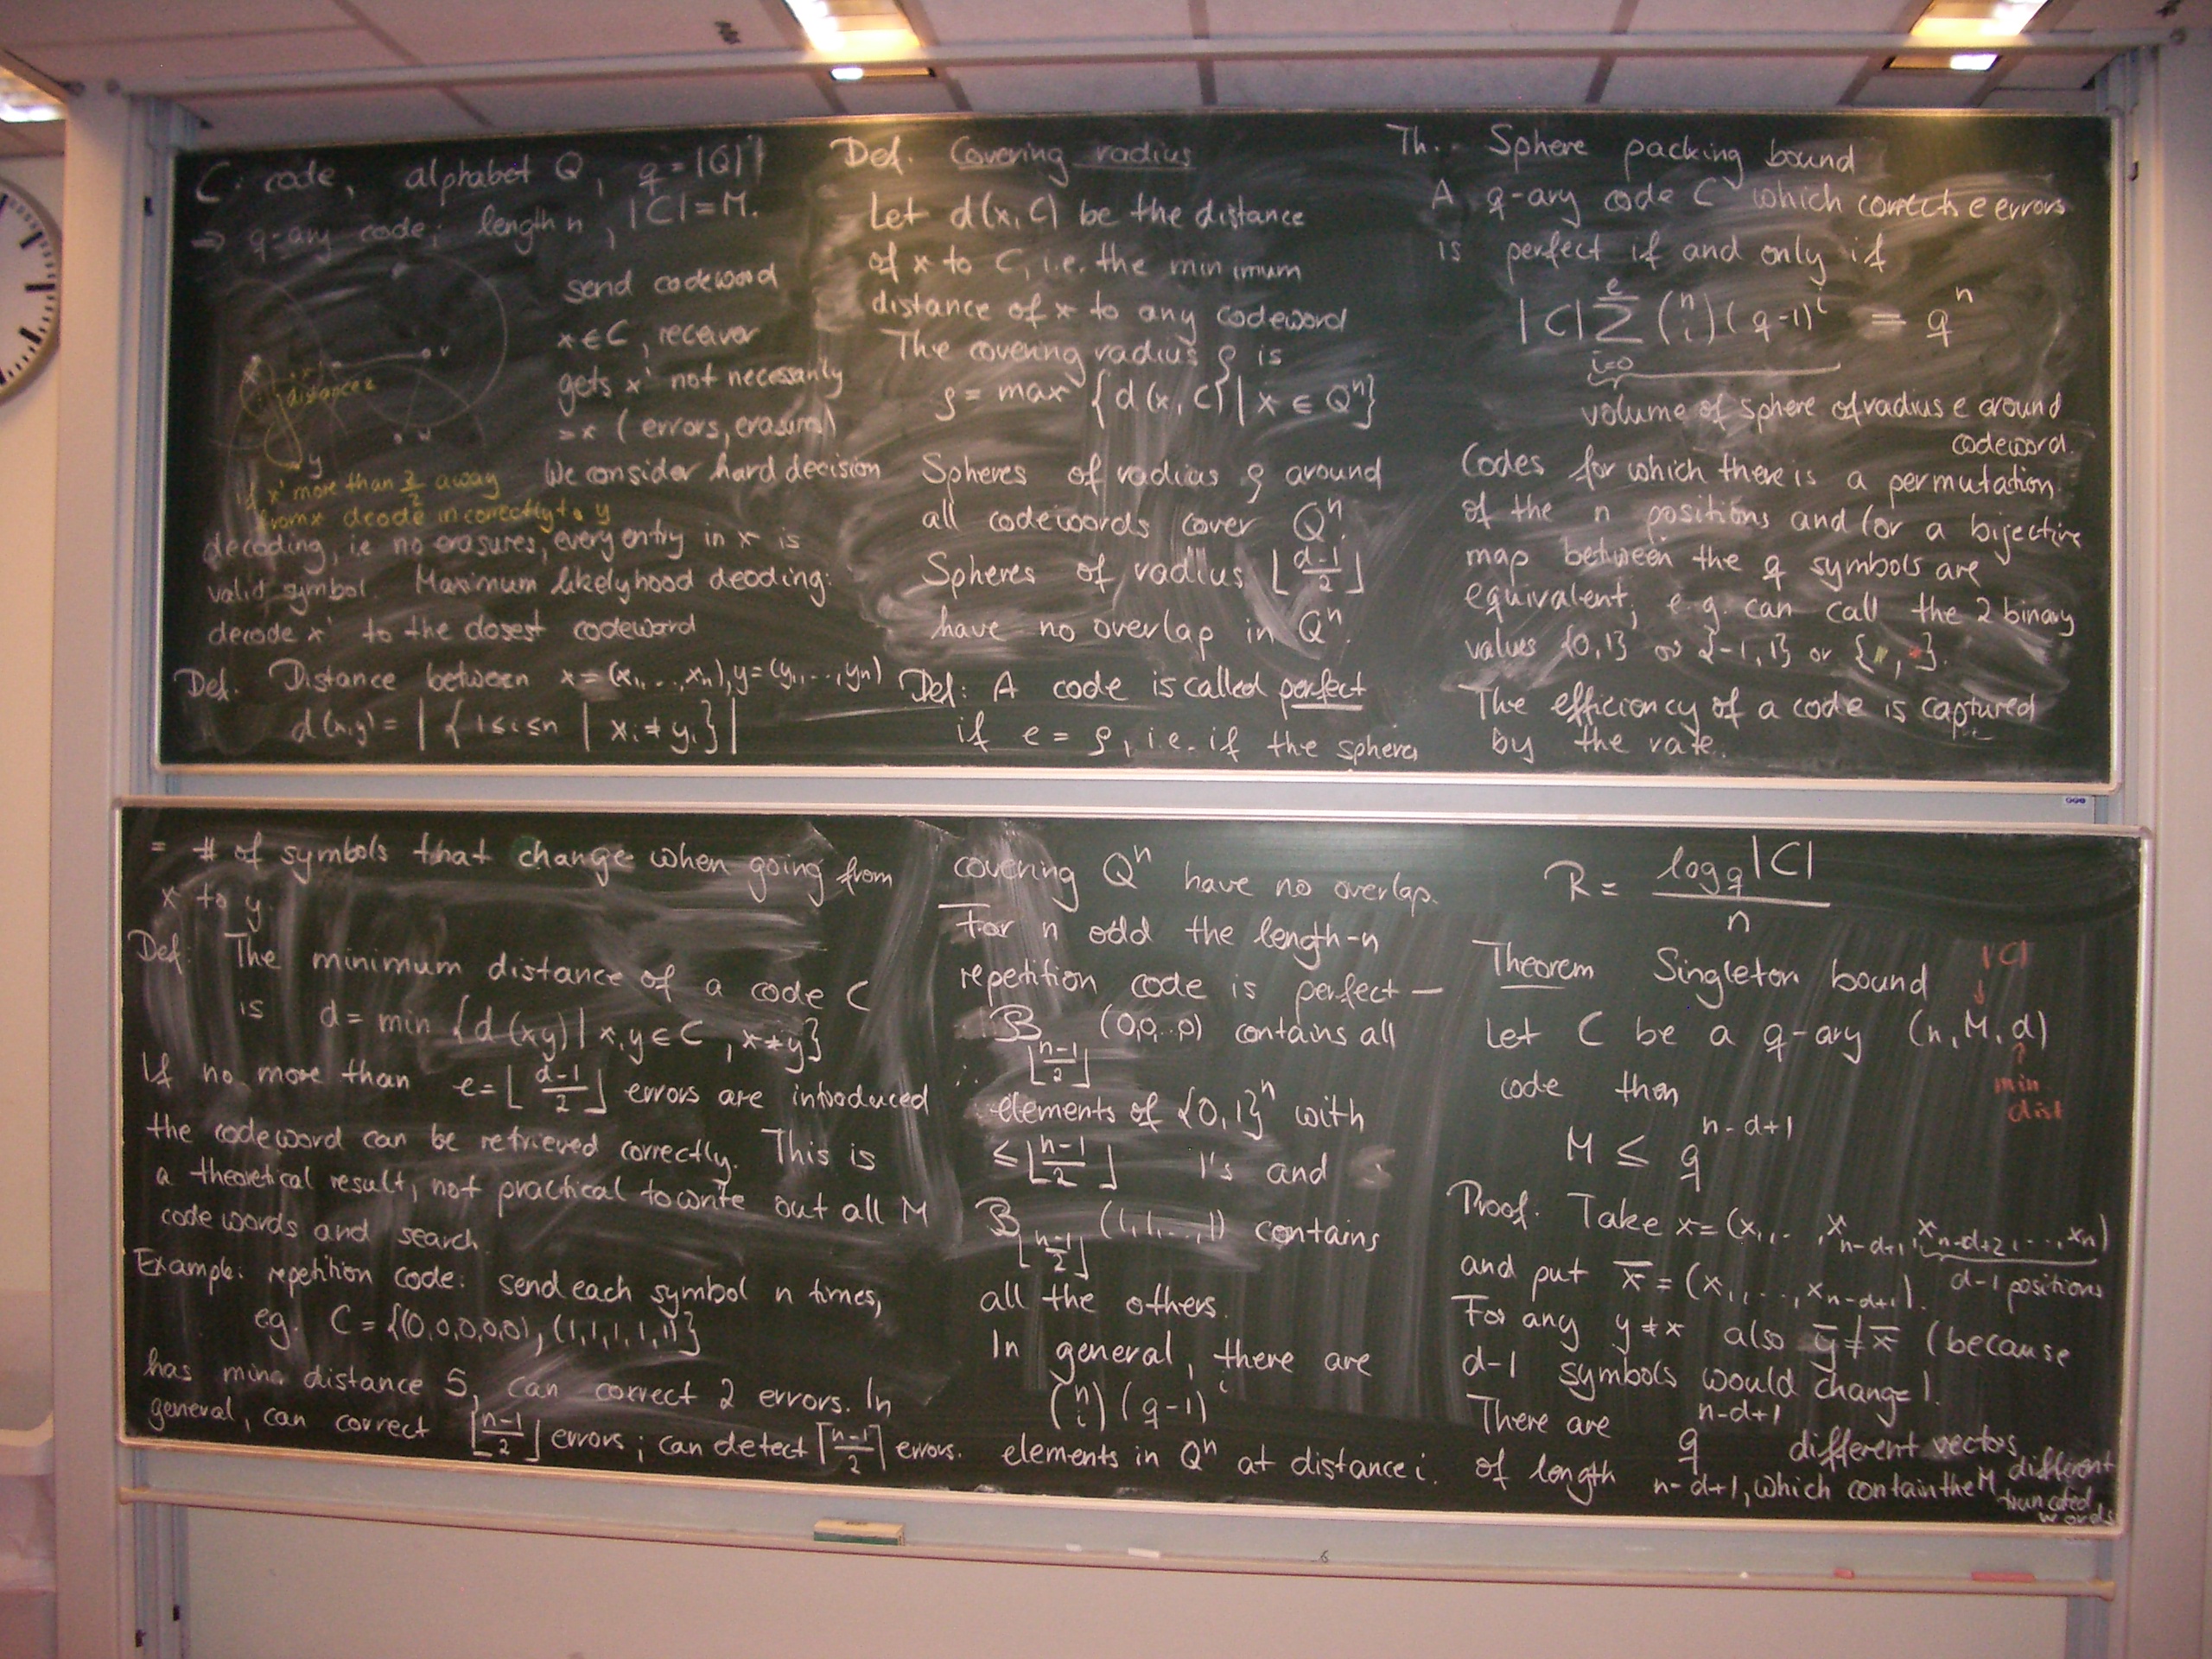 C: code, alphabet Q, q = |Q|
⇒ q-ary code; length n, |C| = M.
send codeword
x ∈ C, receiver
gets x' not necessarily
= x (errors, erasures)
We consider hard decision
distance
y
if x' more than d/2 away
from x decode incorrectly to y
decoding, i.e. no erasures, every entry in x is
valid symbol. Maximum likelyhood deoding:
decode x' to the closest codeword
Def. Distance between x = (x₁,...,xₙ), y = (y₁,...,yₙ)
d(x,y) = |{1≤i≤n | xᵢ ≠ yᵢ}|
= # of symbols that change when going from
x to y.
Def: The minimum distance of a code C
is d = min {d(x,y) | x,y ∈ C, x ≠ y}
If no more than e = ⌊(d-1)/2⌋ errors are introduced
the codeword can be retrieved correctly. This is
a theoretical result, not practical to write out all M
code words and search.
Example: repetition code: send each symbol n times,
eg. C = {(0,0,0,0,0), (1,1,1,1,1)}
has min. distance 5, can correct 2 errors. In
general, can correct ⌊(n-1)/2⌋ errors; can detect ⌈(n-1)/2⌉ errors.
Def. Covering radius
Let d(x,C) be the distance
of x to C, i.e. the minimum
distance of x to any codeword
The covering radius ρ is
ρ = max {d(x,C) | x ∈ Qⁿ}
Spheres of radius ρ around
all codewords cover Qⁿ.
Spheres of radius ⌊(d-1)/2⌋
have no overlap in Qⁿ.
Def: A code is called perfect
if e = ρ, i.e. if the spheres
covering Qⁿ have no overlap.
For n odd the length-n
repetition code is perfect –
B_⌊(n-1)/2⌋ (0,0,..,0) contains all
elements of {0,1}ⁿ with
≤ ⌊(n-1)/2⌋ 1's and
B_⌊(n-1)/2⌋ (1,1,...,1) contains
all the others.
In general, there are
(n i) (q-1)^i
elements in Qⁿ at distance i.
Th.. Sphere packing bound
A q-ary code C which corrects e errors
is perfect if and only if
|C| Σ_{i=0}^{e} (n i) (q-1)^i = qⁿ
volume of sphere of radius e around
codeword.
Codes for which there is a permutation
of the n positions and/or a bijective
map between the q symbols are
equivalent, e.g. can call the 2 binary
values {0,1} or {-1,1} or {*,*}.
The efficiency of a code is captured
by the rate.
R = log_q|C| / n
Theorem Singleton bound
|C|
↓
Let C be a q-ary (n, M, d)
↑
min
dist
code then
M ≤ q^{n-d+1}
Proof. Take x = (x₁,.., x_{n-d+1}, x_{n-d+2},...,xₙ)
d-1 positions
and put x̄ = (x₁,...,x_{n-d+1}).
For any y ≠ x also ȳ ≠ x̄ (because
d-1 symbols would change).
There are q^{n-d+1} different vectors
of length n-d+1, which contain the M different
truncated
words